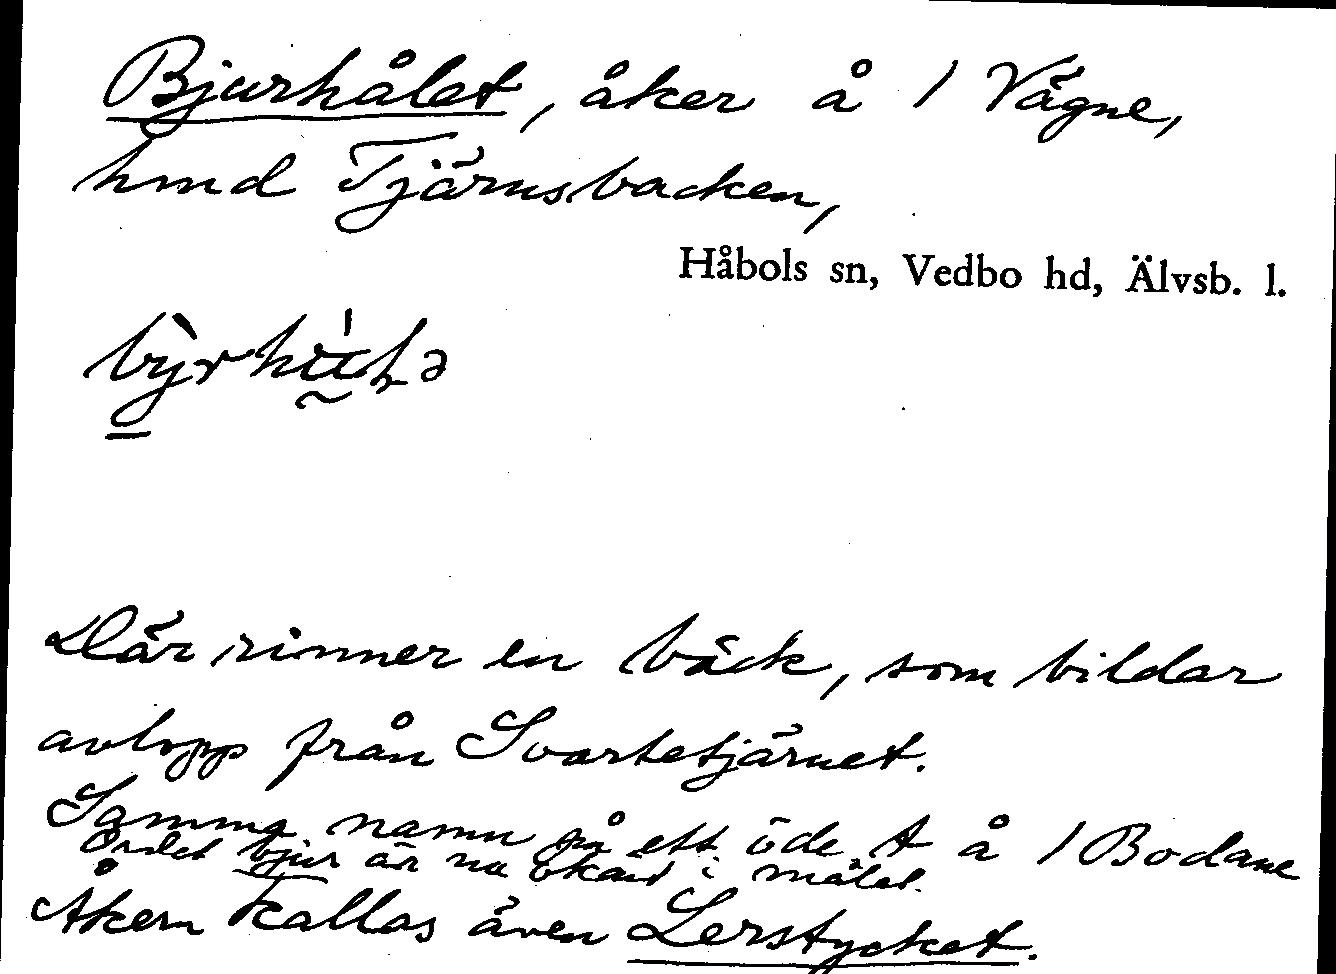 Bjurhålet, åker å 1 Vägne,
hmd Tjärnsbacken,
Håbols sn, Vedbo hd, Älvsb. l.
Där rinner en bäck, som bildar
avlopp från Svartetjärnet.
Samma namn på ett öde t å 1 Bodane
Ordet bjur är nu okänt i målet.
Åkern kallas även Lerstycket.